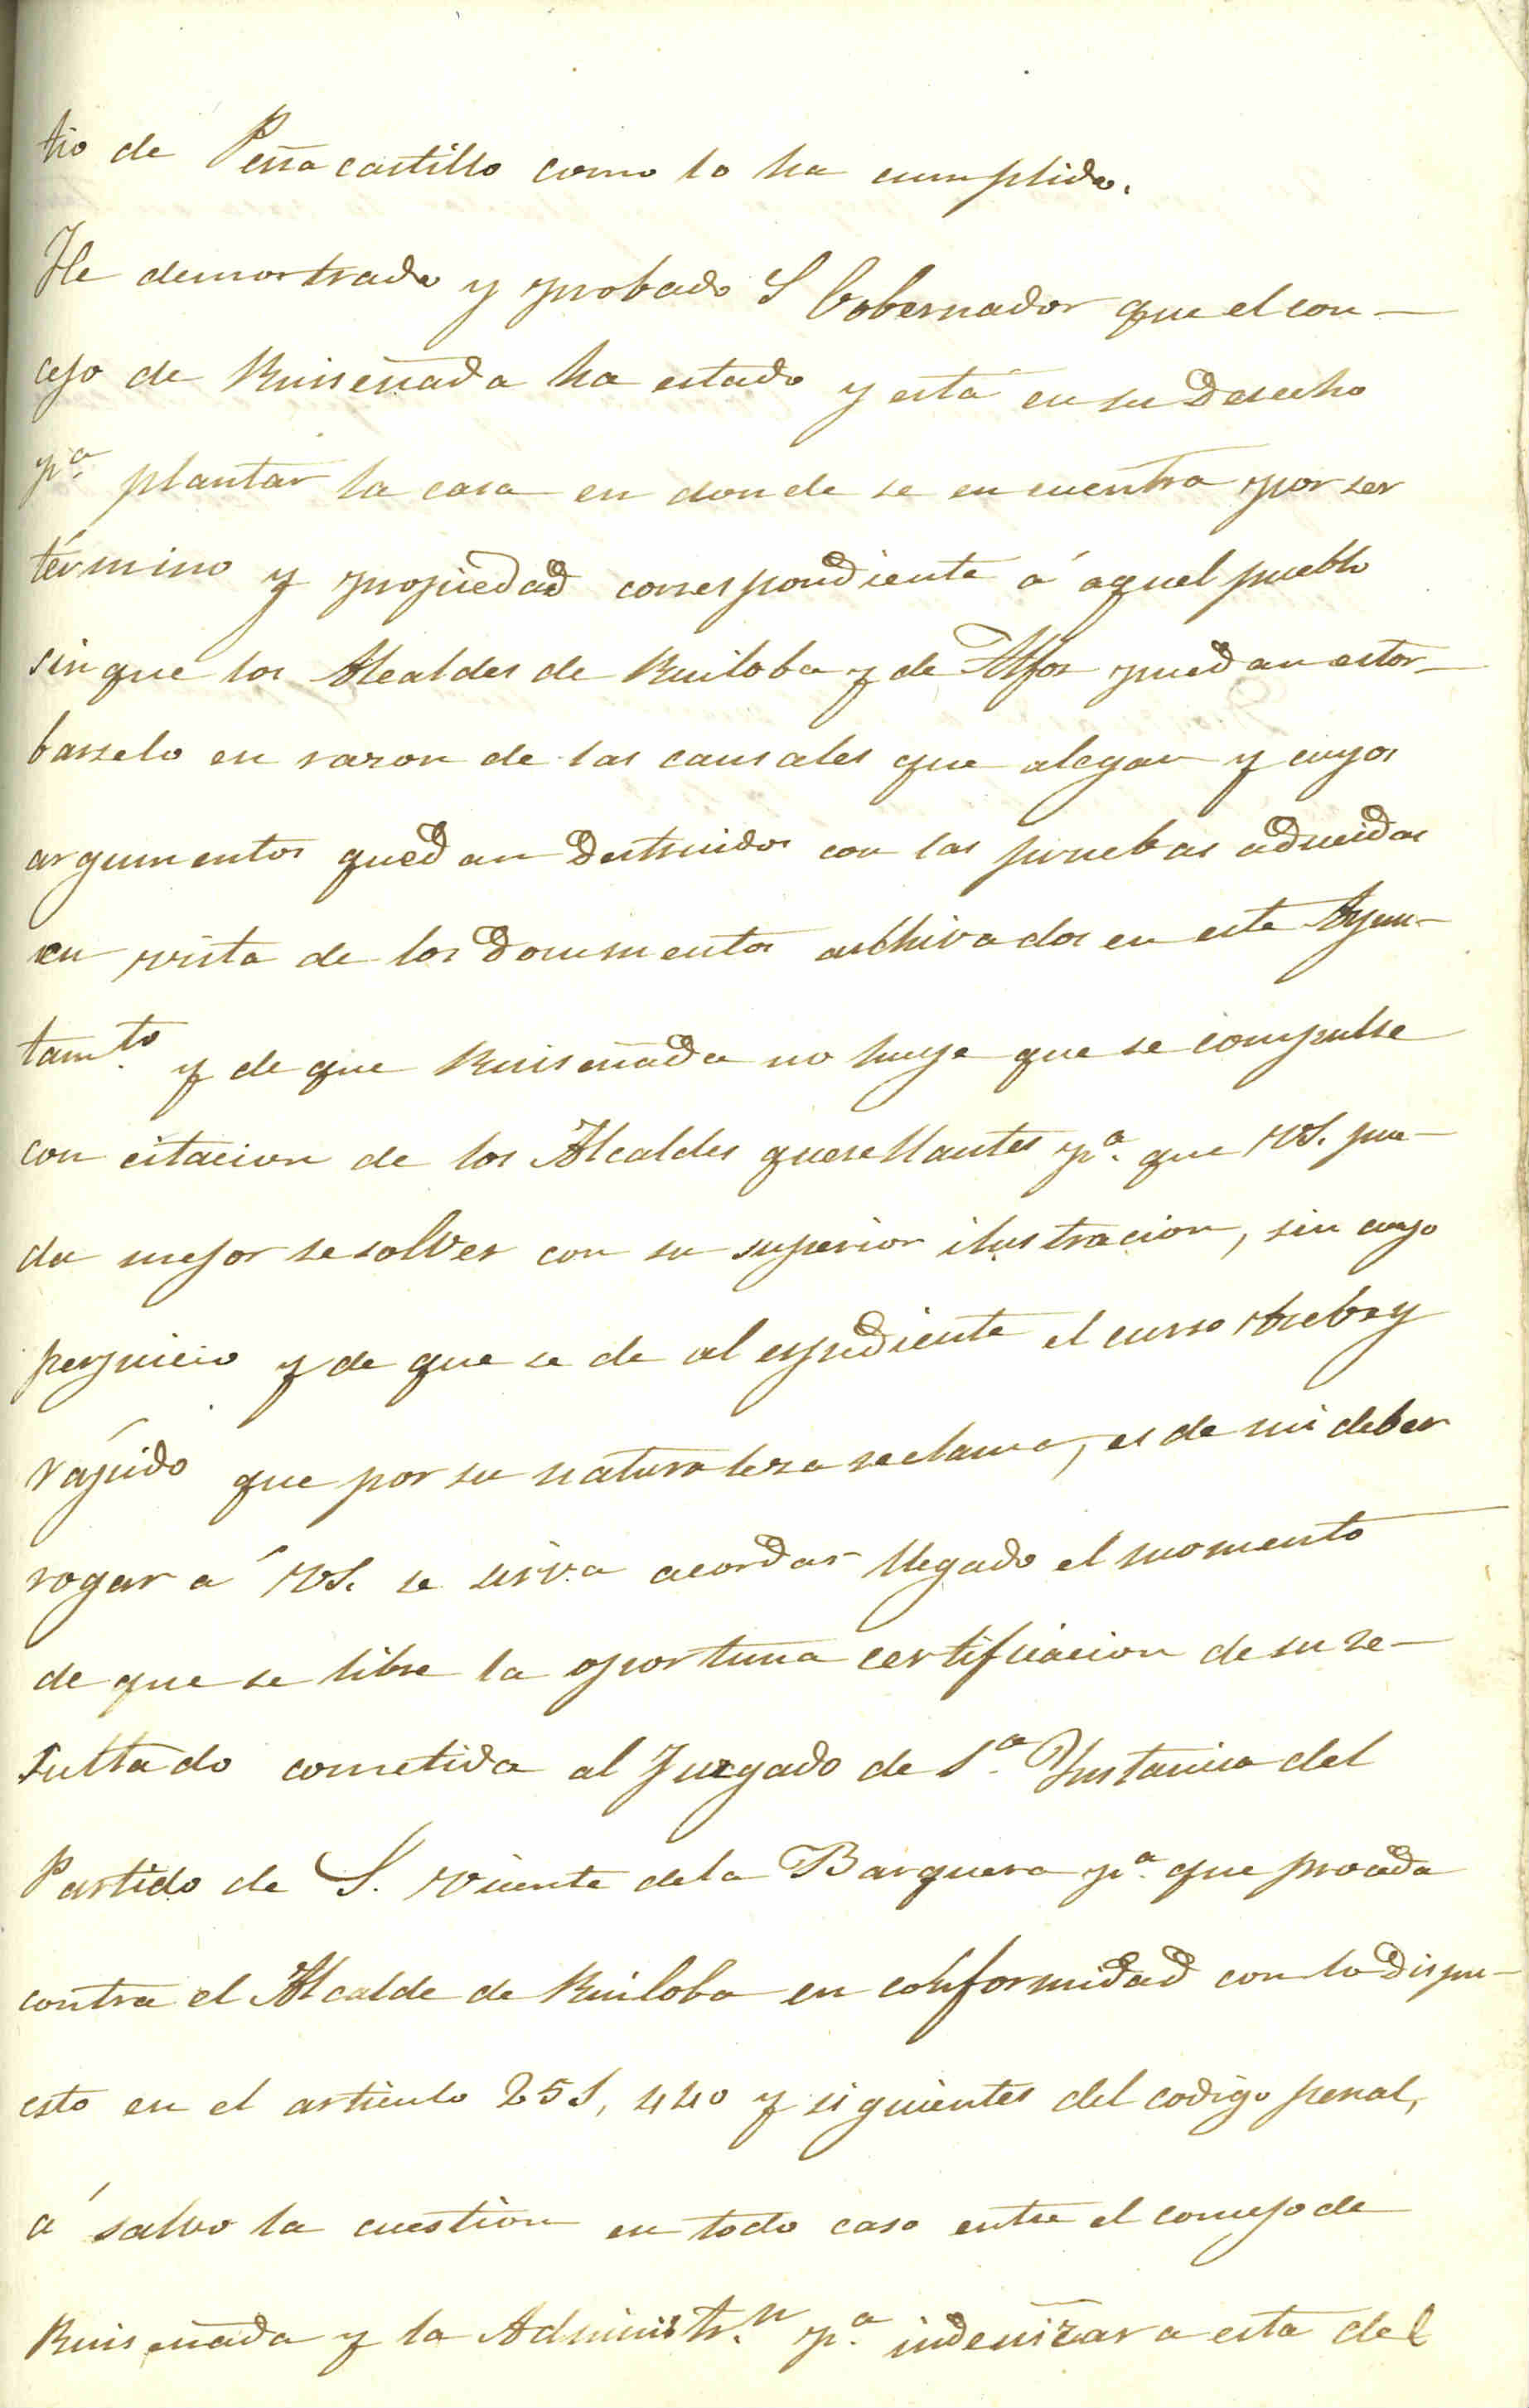 tio de Peñacastillo como lo ha cumplido.
He demostrado y probado S Gobernador que el con-
cejo de Ruiseñada ha estado y está en su derecho
pª. plantar la casa en donde se encuentra por ser
término y propiedad correspondiente á aquel pueblo
sin que los Alcaldes de Ruiloba y de Alfoz puedan estor-
barselo en razon de las causales que alegan y cuyos
argumentos quedan destruidos con las pruebas aducidas
en vista de los documentos archivados en este Ayun-
tam.to y de que Ruiseñada no huye que se compulse
con citacion de los Alcaldes querellantes pª. que VS. pue-
da mejor resolver con su superior ilustracion, sin cuyo
perjuicio y de que se de al espediente el curso breve y
rápido que por su naturaleza reclama, es de mi deber
rogar á VS. se sirva acordar llegado el momento
de que se libre la oportuna certificacion de su re-
sultado cometida al Juzgado de 1ª. Ynstancia del
Partido de S. Vicente de la Barquera pª. que proceda
contra el Alcalde de Ruiloba en conformidad con lo dispu-
esto en el articulo 251, 440 y siguientes del codigo penal,
á salvo la cuestion en todo caso entre el concejo de
Ruiseñada y la Administr.n pª. indemnizar a esta del